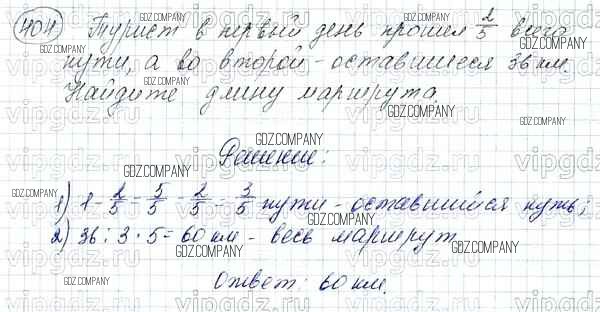 404 Турист в первый день прошел 2/5 всего
пути, а во второй - оставшиеся 36 км.
Найдите длину маршрута.
Решение:
1) 1 - 2/5 = 5/5 - 2/5 = 3/5 пути - оставшийся путь;
2) 36 : 3 · 5 = 60 км - весь маршрут
Ответ: 60 км.